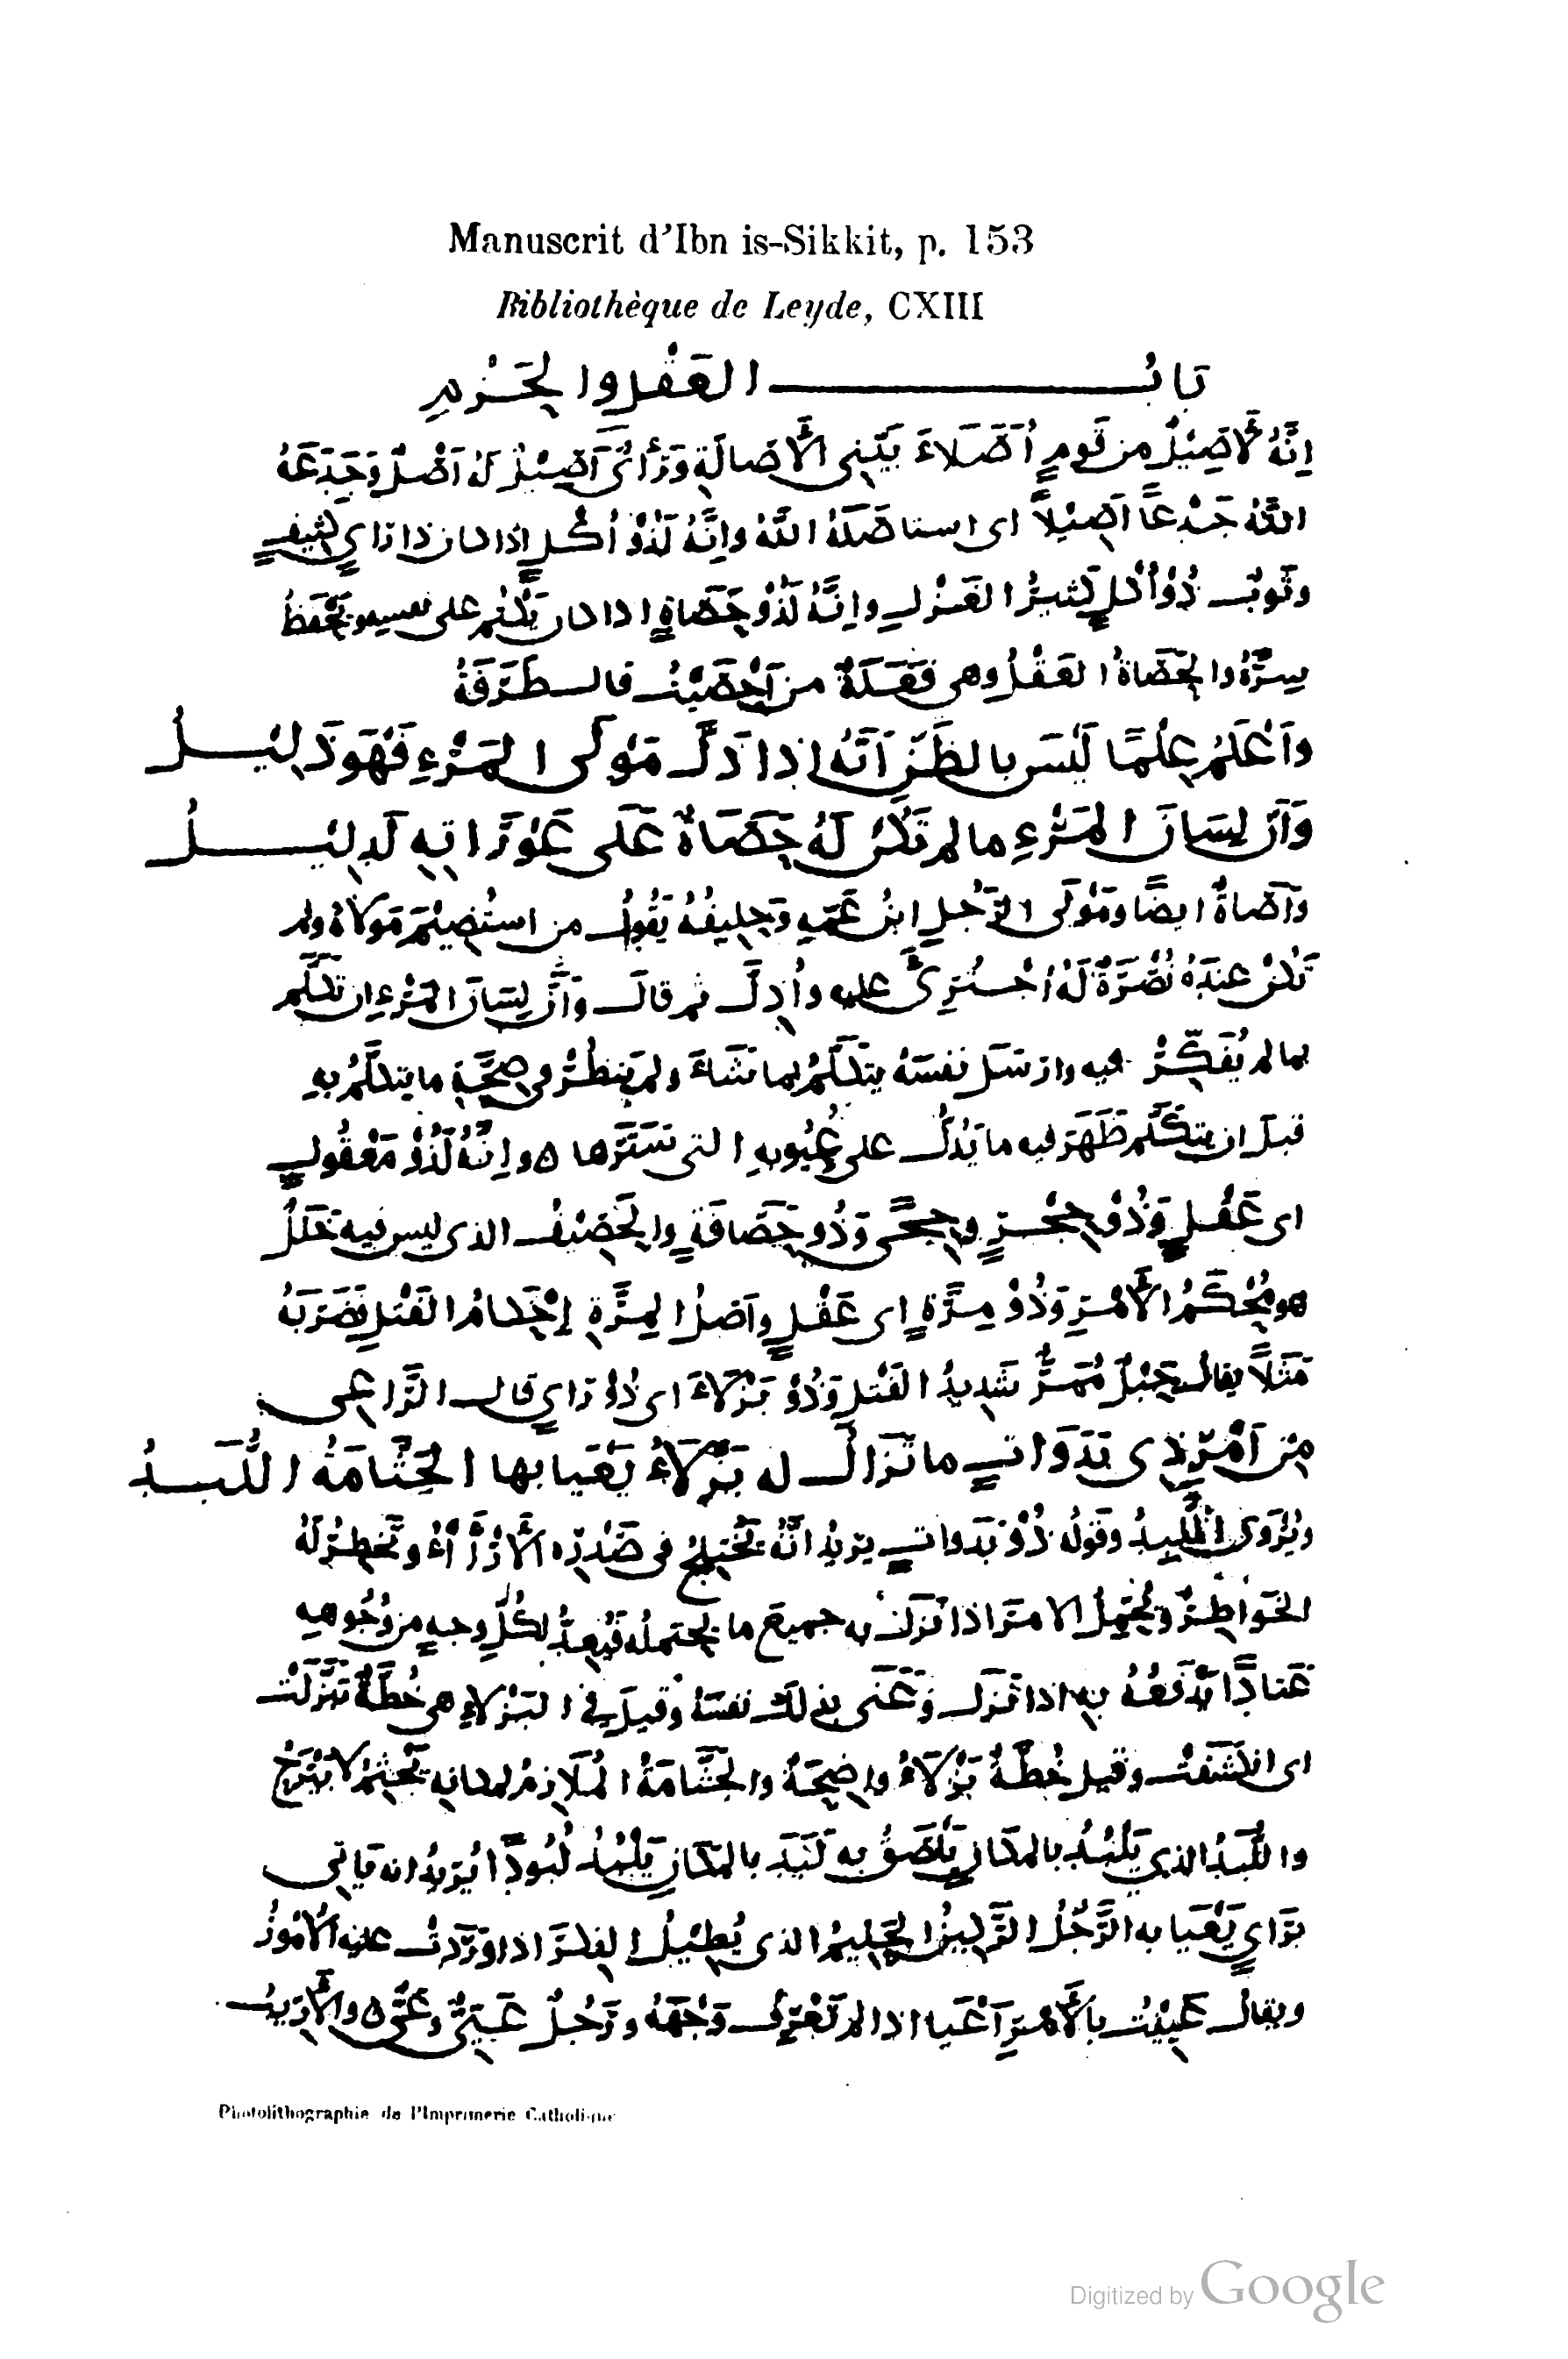 Manuscrit d'Ibn is-Sikkit, p. 153
Bibliothèque de Leyde, CXIII
بَابُ العَقْلِ وَالحَزْمِ
اِنَّهُ لَأَصِيْلٌ من قَومٍ أُصَلَاءَ بَيِّنِى الأَصَالَةِ وَرَأْىٌ أَصِيْلٌ لَهُ أَصْلٌ وَجَدَعَهُ
اللهُ جَدْعًا أَصِيْلًا اى استاصَلَهُ اللهُ وَاِنَّهُ لَذُوْ أُكْلٍ اذا كان ذا رَايٍ كَثِيفٍ
وثَوبٌ ذُوْ أُكْلٍ كثيرُ الغَزْلِ واِنَّهُ لَذُوْ حَصَاةٍ اذا كان يَكْتُم على نفسِهِ ويَحْفَظُ
سِرَّهُ والحَصَاةُ العَقْلُ وهى فَعَلَةٌ من أَحْصَيْتُ قال طَرَفَةُ
وَاَعْلَمُ عِلْمًا لَيْسَ بالظَنِّ اَنَّهُ اِذا ذَلَّ مَوْلَى المَرْءِ فَهْوَ ذَلِيْلُ
وَاَنَّ لِسَانَ المَرْءِ ما لم تَكُنْ لَهُ حَصَاةٌ عَلَى عَوْرَاتِهِ لَدَلِيْلُ
وأَصَاةٌ ايضًا ومَوْلَى الرَّجُلِ ابنُ عَمِّهِ وَحَلِيفُهُ يَقُولُ من استُضِيْمَ مَوْلَاهُ ولم
تَكُنْ عِندَهُ نُصْرَةٌ لَهُ اُجْتُرِىَٔ عليه واُذِلَّ ثم قالَ وَاَنَّ لِسَانَ المَرْءِ اِن تكلَّم
بما لم يُفَكِّرْ فيه وارسَلَ نفسَهُ يتكلَّمُ بما تشَاءُ ولم يَنظُرْ فى صِحَّةِ ما يتكلَّمُ بهِ
قبلَ ان يتكَلَّم ظَهَرَ فيه ما يَدُلُّ على عُيُوبهِ التى سَتَرَها ه واِنَّهُ لَذُوْ مَعْقُولٍ
اى عَقْلٍ وَذُوْ حِجْرٍ وحِجًى وَذُو حَصَافَةٍ والحَصِيْفُ الذى ليس فيه خَلَلٌ
هو مُحْكَمُ الأَمْرِ وَذُوْ مِرَّةٍ اى عَقْلٍ واَصلُ المِرَّةِ اِحْكامُ الفَتْلِ فضَرَبَهُ
مَثَلًا يقالُ حَبْلٌ مُمَرٌّ شَدِيدُ الفَتْلِ وَذُوْ بَزْلَاءَ اى ذُوْ رَايٍ قال الرَّاعى
مِن اَمْرِ ذِى بَدَوَاتٍ ما تَزَالُ له بَزْلَاءُ يَعْيَا بها الجَثَّامَةُ اللُّبَدُ
ويُرْوَى اللَّبِدُ وقَولُهُ ذُوْ بَدَواتٍ يريدُ انَّهُ تَخْتَلِجُ فى صَدْرِهِ الأَرَأَاءُ وتَخطِرُ لَهُ
الخَوَاطِرُ ويَحْتَمِلُ الامرَ اذا نَزَلَ به جميعَ ما يحتملُه فَيُعِدُّ لكُلِّ وجهٍ من وُجُوهِهِ
عَتادًا يَدْفَعُهُ بِهِ اذا نَزَلَ وَعَنَى بذلكَ نفسَهُ وقيلَ فى البَزْلاءِ هى خُطَّةٌ تَبَزَّلَتْ
اى انكَشَفَتْ وقيل خُطَّةٌ بَزْلَاءُ واضِحَةٌ والجَثَّامَةُ المُلَازِمُ لمكانِهِ يَجْثِمُ لا يَبْرَحُ
واللُّبَدُ الذى يَلْبُدُ بالمكَانِ يَلْصَقُ به لَبَدَ بالمَكَانِ يَلْبُدُ لُبُودًا يُرِيدُ انه يَاتى
برَايٍ يَعْيَا به الرَّجُلُ الرَّكِينُ الحَلِيمُ الذى يُطِيْلُ الفِكرَ اذا وَرَدَتْ عليه الأُمُوْرُ
ويقالُ عَيِيْتُ بِالأَمْرِ اَعْيَا اذا لم تَعْرِفْ وَجْهَهُ ورَجُلٌ عَيِىٌّ وعَىٌّ ه والأَرِيبُ
Photolithographie de l'Imprimerie Catholique
Digitized by Google